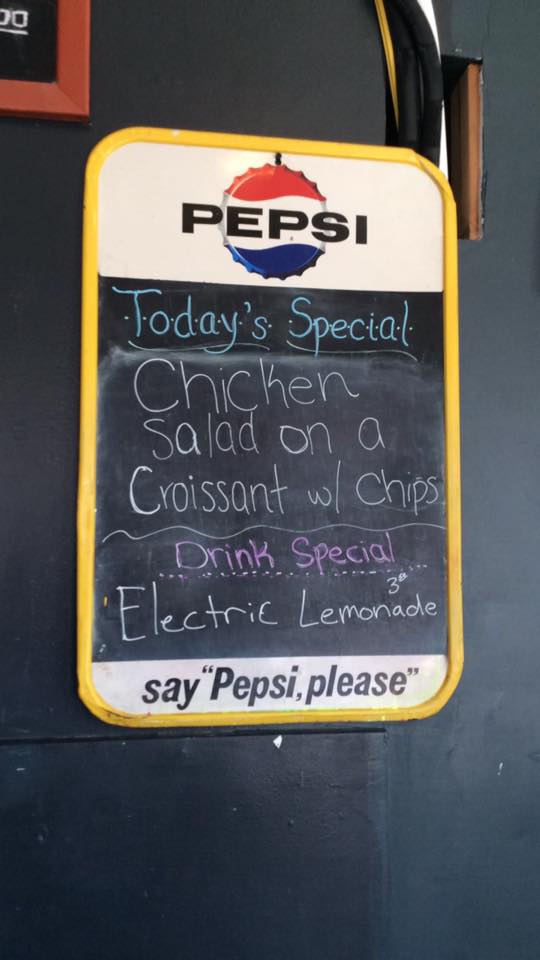 00
PEPSI
Today's Special
Chicken
Salad on a
Croissant w/ Chips
Drink Special
Electric Lemonade
say "Pepsi, please"